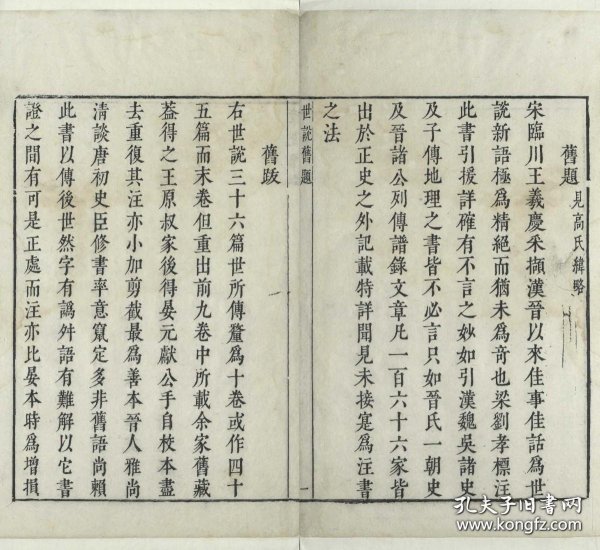 舊題 見高氏緯略
宋臨川王義慶采擷漢晉以來佳事佳話爲世
說新語極爲精絕而猶未爲竒也梁劉孝標注
此書引援詳確有不言之妙如引漢魏吳諸史
及子傳地理之書皆不必言只如晉氏一朝史
及晉諸公列傳譜錄文章凡一百六十六家皆
出於正史之外記載特詳聞見未接寔爲注書
之法
世說舊題
一
舊跋
右世說三十六篇世所傳釐爲十卷或作四十
五篇而末卷但重出前九卷中所載余家舊藏
葢得之王原叔家後得晏元獻公手自校本盡
去重復其注亦小加剪截最爲善本晉人雅尚
清談唐初史臣修書率意竄定多非舊語尚賴
此書以傳後世然字有譌舛語有難解以它書
證之間有可是正處而注亦比晏本時爲增損
孔夫子旧书网
www.kongfz.com